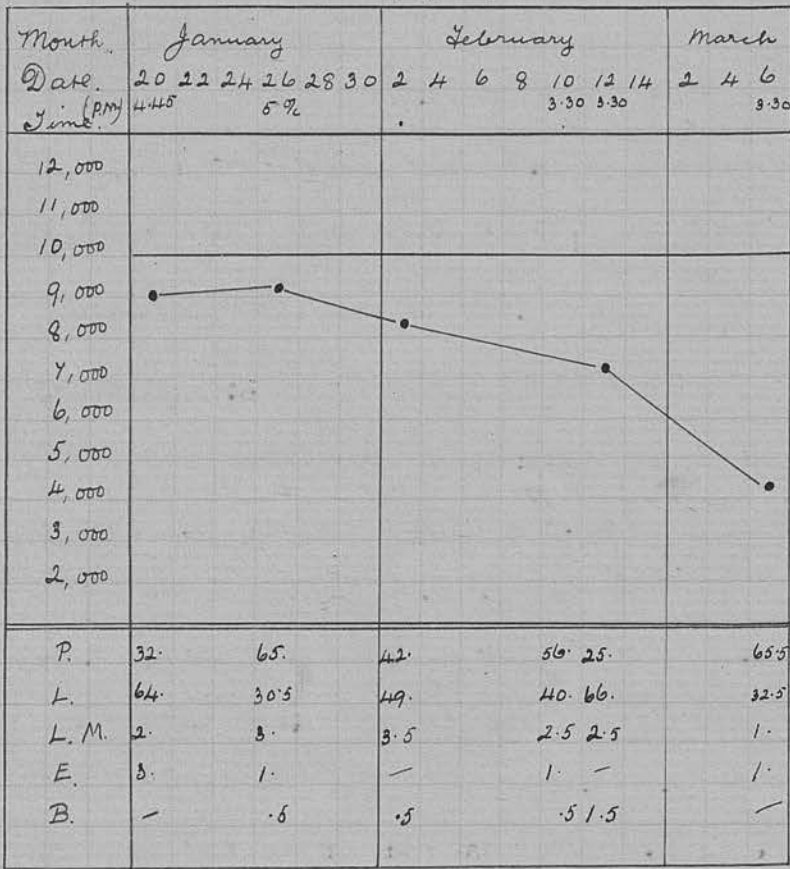 Month. January February March
Date. 20 22 24 26 28 30 2 4 6 8 10 12 14 2 4 6
Time. (P.M) 4.45 3.30 3.30 3.30
12,000
11,000
10,000
9,000
8,000
7,000
6,000
5,000
4,000
3,000
2,000
P. 32. 65. 42. 56. 25. 65.5
L. 64. 30.5 49. 40. 66. 32.5
L. M. 2. 3. 3.5 2.5 2.5 1.
E. 3. 1. — 1. — 1.
B. — .5 .5 .5 1.5 —